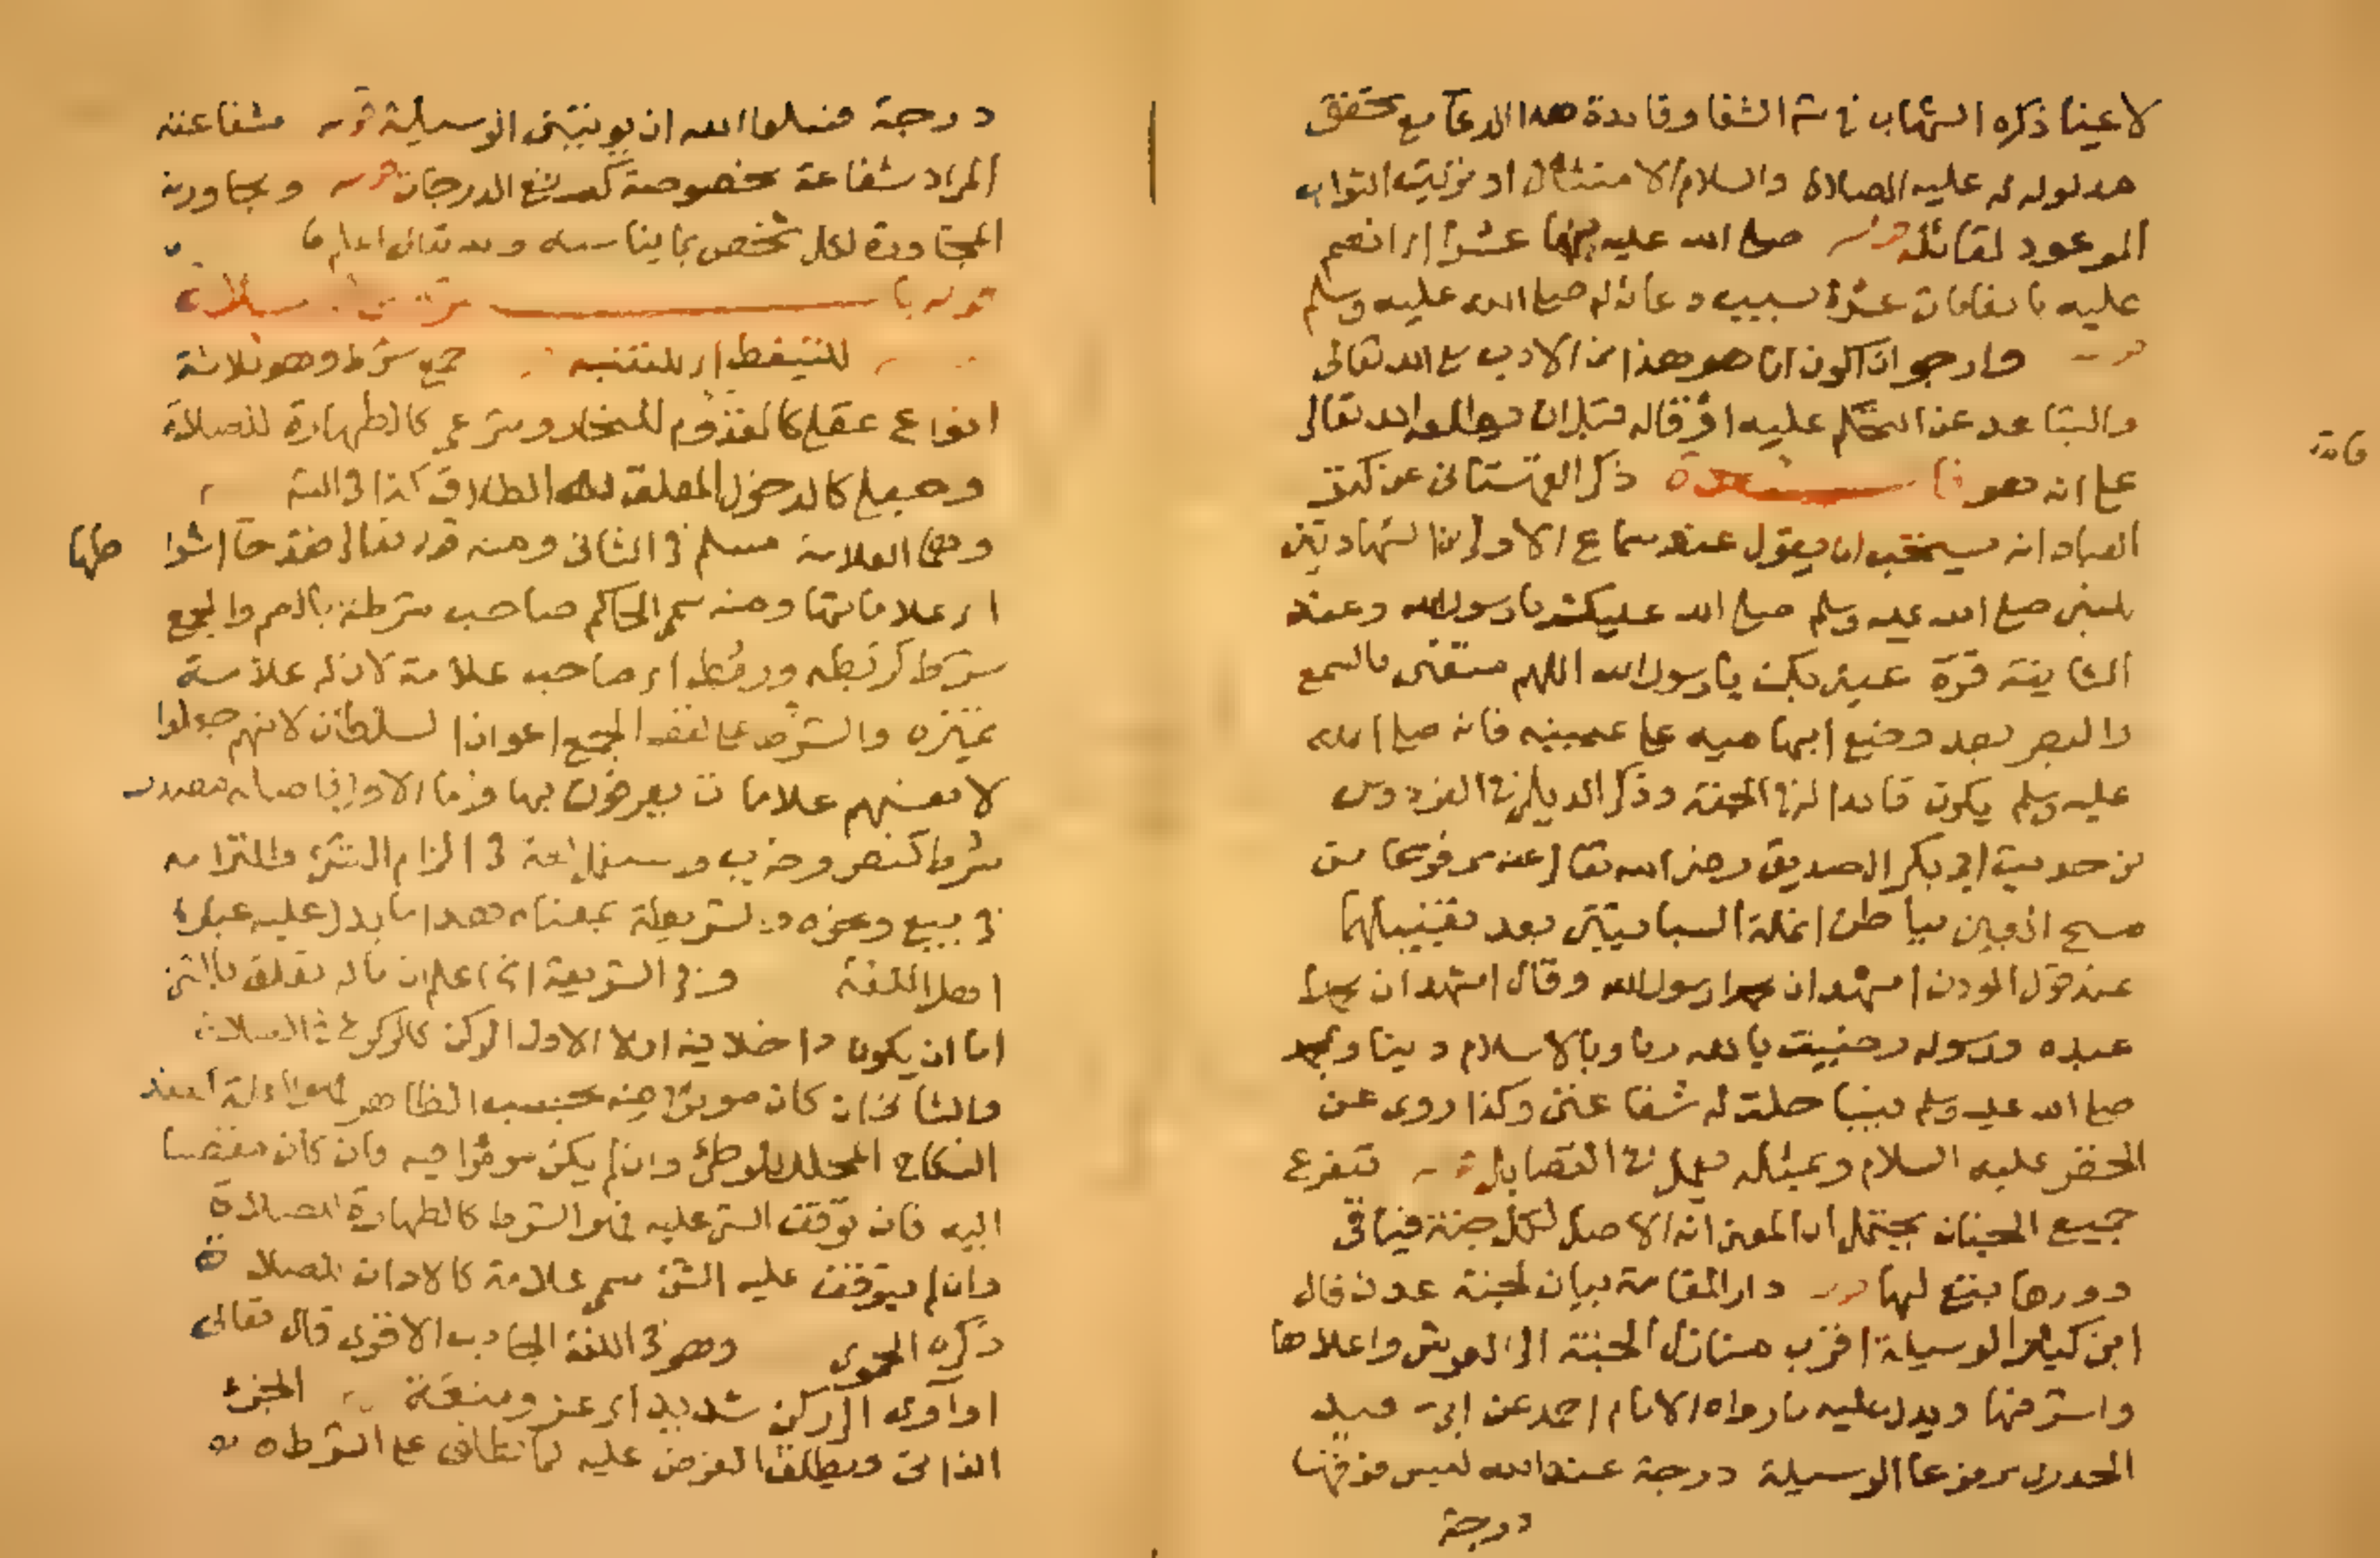 لا عينا ذكره الشهاب في شرح الشفا وفائدة هذا الدعا مع تحقق
مدلوله له عليه الصلاة والسلام الامتثال او ترتيب الثواب
الموعود لقائله قوله صلى الله عليه بها عشرا اي انعم
عليه بانعامات عشرة بسبب دعائه له صلى الله عليه وسلم
قوله وارجو ان اكون انا هو هذا من الادب مع الله تعالى
والتباعد عن التحكم عليه او قاله قبل ان يطلعه الله تعالى
على انه هو فائدة ذكر القهستاني عن كنز
العباد انه يستحب ان يقول عند سماع الاولى من الشهادتين
للنبي صلى الله عليه وسلم صلى الله عليك يا رسول الله وعند
الثانية قرة عيني بك يا رسول الله اللهم متعني بالسمع
والبصر بعد وضع ابهاميه على عينيه فانه صلى الله
عليه وسلم يكون قائدا له في الجنة وذكر الديلمي في الفردوس
من حديث ابي بكر الصديق رضي الله تعالى عنه مرفوعا من
مسح العينين بباطن انملة السبابتين بعد تقبيلهما
عند قول الموذن اشهد ان محمدا رسول الله وقال اشهد ان محمدا
عبده ورسوله رضيت بالله ربا وبالاسلام دينا وبمحمد
صلى الله عليه وسلم نبيا حلت له شفاعتي وكذا روى عن
الخضر عليه السلام وبمثله يعمل في الفضايل قوله تتفرع
جميع الجنان يحتمل ان المعنى انه الاصل لكل جنة فباقي
دورها يتبع لها قوله دار المقامة بيان لجنة عدن قال
ابن كثير الوسيلة اقرب منازل الجنة الى العرش واعلاها
واشرفها ويدل عليه ما رواه الامام احمد عن ابي سعيد
الخدري مرفوعا الوسيلة درجة عند الله ليس فوقها
درجة
فائدة
درجة فسلوا الله ان يوتيني الوسيلة قوله شفاعته
المراد شفاعة مخصوصة كرفع الدرجات قوله ومجاورته
المجاورة لكل شخص بما يناسبه والله تعالى اعلم
قوله باب شروط الصلاة
للتيقظ اي للتنبه جمع شرط وهو ثلاثة
انواع عقلي كالقدوم للنجار وشرعي كالطهارة للصلاة
وجعلي كالدخول المعلق به الطلاق كذا في الشرح
وهي العلامة مسلم في الثاني ومنه قوله تعالى فقد جاء اشرا
طها
اي علاماتها ومنه سمي الحاكم صاحب شرطة بالضم والجمع
شرط كرتبة ورتب اي صاحب علامة لان له علامة
تميزه والشرط على لفظ الجمع اعوان السلطان لانهم جعلوا
لانفسهم علامات يعرفون بها واما الاول فاصله مصدر
شرط كنصر وضرب ومعناه لغة في الزام الشيء والتزامه
في بيع ونحوه والشريطة بمعناه هذا ما يدل عليه عبارة
اهل اللغة وفي الشريعة الخ اعلم ان ما له تعلق بالشئ
اما ان يكون داخلا فيه او لا الاول الركن كالركوع في الصلاة
والثاني ان كان موثرا فيه بحسب الظاهر فهو العلة كعقد
النكاح المحلل للوطئ وان لم يكن موثرا فيه فان كان مفضيا
اليه فان توقف الشئ عليه فهو الشرط كالطهارة للصلاة
وان لم يتوقف عليه الشئ سمي علامة كالاذان للصلاة
ذكره الحموي وهو في اللغة الجانب الاقوى قال تعالى
او آوي الى ركن شديد اي عز ومنعة الجزء
الذاتي ويطلق الفرض عليه كما يطلق على الشرط